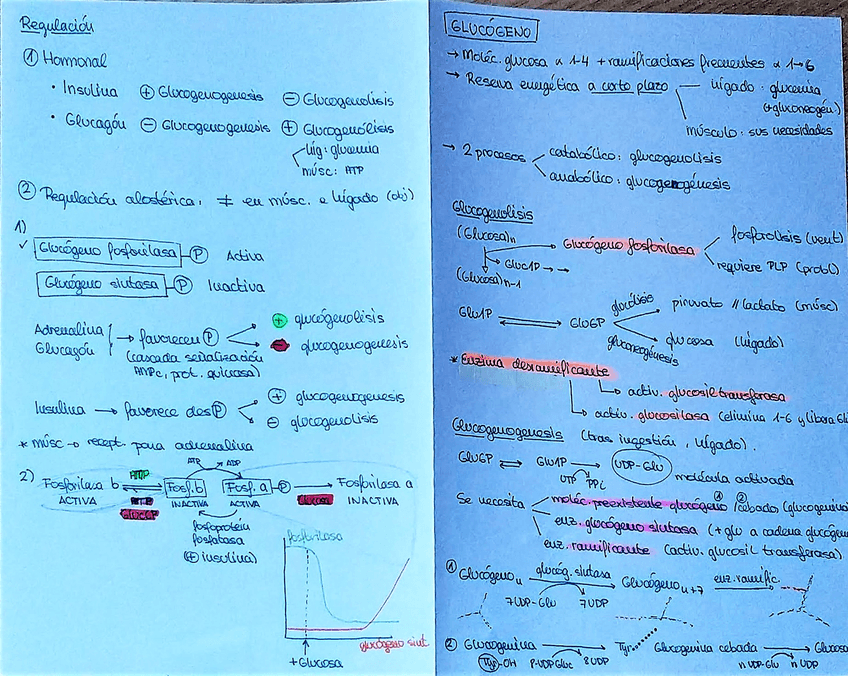 Regulación
① Hormonal
• Insulina ⊕ Glucogenogenesis ⊖ Glucogenolisis
• Glucagón ⊖ Glucogenogenesis ⊕ Glucogenólisis
líg: glucemia
músc: ATP
② Regulación alostérica: ≠ en músc. e hígado (obj)
1)
✓ Glucógeno fosforilasa - P Activa
Glucógeno sintasa - P Inactiva
Adrenalina
Glucagón → favorecen P
⊕ glucógenolisis
⊖ glucogenogenesis
(cascada señalización
AMPc, prot. quinasa)
Insulina → favorece desP
⊕ glucogenogenesis
⊖ glucogenolisis
* músc → recept. para adrenalina
2) Fosforilasa b ⇌ Fosf. b Fosf. a - P → Fosforilasa a
AMP ATP ADP
ACTIVA ATP INACTIVA ACTIVA Glucosa INACTIVA
Gluc6P
fosfoprotein
fosfatasa
(⊕ insulina)
fosforilasa
glucógeno sint
+Glucosa
GLUCÓGENO
→ Moléc. glucosa α 1-4 + ramificaciones frecuentes α 1→6
→ Reserva energética a corto plazo
hígado: glucemia
(+gluconeogén)
músculo: sus necesidades
→ 2 procesos
catabólico: glucogenolisis
anabólico: glucogenogénesis
Glucogenolisis
(Glucosa)n → Glucógeno fosforilasa
fosforolisis (vent)
requiere PLP (probl)
→ Gluc1P → →
(Glucosa)n-1
Glu1P ⇌ Glu6P
glucólisis piruvato // lactato (músc)
gluconeogénesis glucosa (hígado)
* Enzima desramificante
→ activ. glucosil transferasa
→ activ. glucosilasa (elimina 1-6 y libera Gl
Glucogenogenesis (tras ingestión, hígado).
Glu6P ⇌ Glu1P → UDP-Glu molécula activada
UTP PPi
Se necesita
moléc. preexistente glucógeno ① / cebado ② (glucogenina
enz. glucógeno sintasa (+glu a cadena glucógeno
enz. ramificante (activ. glucosil transferasa)
① Glucógeno n → glucóg. sintasa Glucógeno n+7 → enz. ramific.
7UDP-Glu 7UDP
② Glucogenina → Tyr Glucogenina cebada → Glucosa
Tyr-OH 8UDP n UDP-Glu n UDP